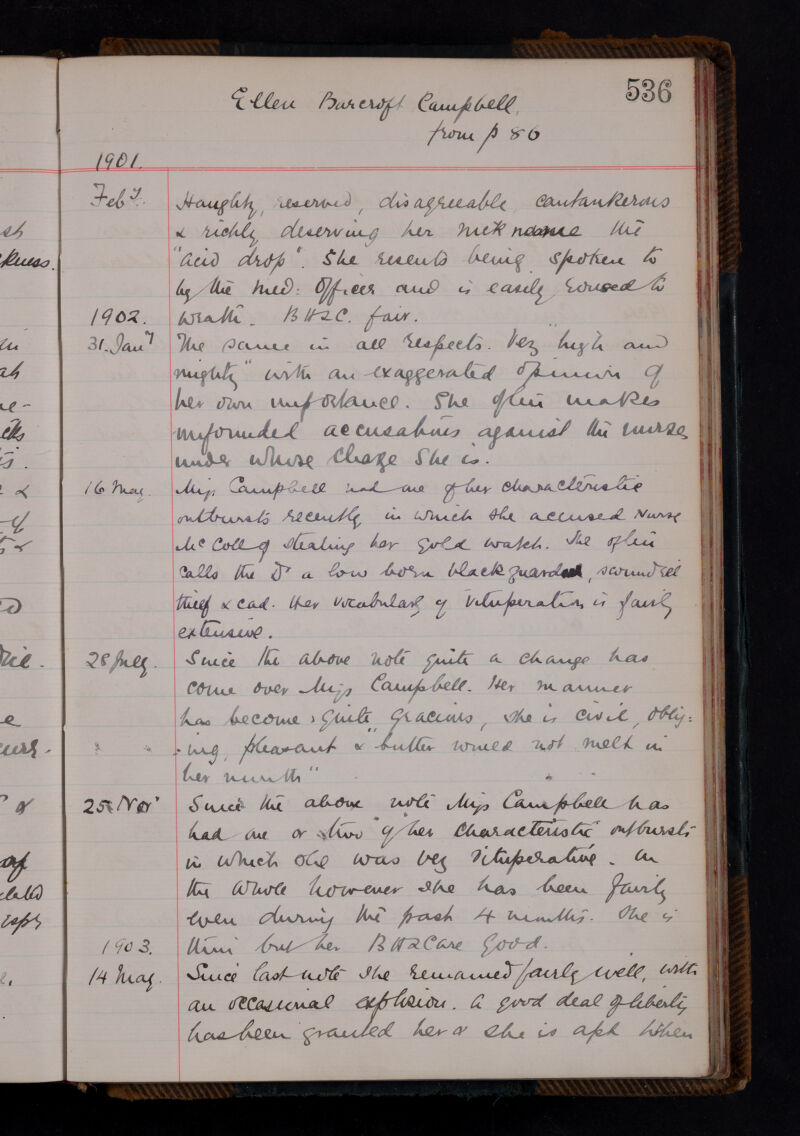 536
Ellen Barcroft Campbell.
from p 86
1901.
Feby. Haughty, reserved, disagreeable, cantankerous
& richly deserving her nickname the
"acid drop". She resents being spoken to
by the Med: Officer and is easily roused to
1902. wrath. B H & C. fair.
31. Jany The same in all respects. Very "high and
mighty" with an exaggerated opinion of
her own importance. She often makes
unfounded accusations against the nurses
under whose charge she is.
16 May. Miss Campbell had one of her characteristic
outbursts recently in which she accused Nurse
McColl of stealing her gold watch. She often
calls the Dr a low born blackguard, scoundrel
thief & cad. Her vocabulary of vituperation is fairly
extensive.
28 July. Since the above note quite a change has
come over Miss Campbell. Her manner
has become quite gracious, she is civil, oblig:
:ing, pleasant & "butter would not melt in
her mouth"
25 Nov Since the above note Miss Campbell has
had one or two "of her characteristic" outbursts
in which she was very vituperative. On
the whole however she has been fairly
even during the past 4 months. She is
1903. thin but her B H & C are good.
14 May. Since last note she remained fairly well, with
an occasional explosion. A good deal of liberty
has been granted her & she is apt when